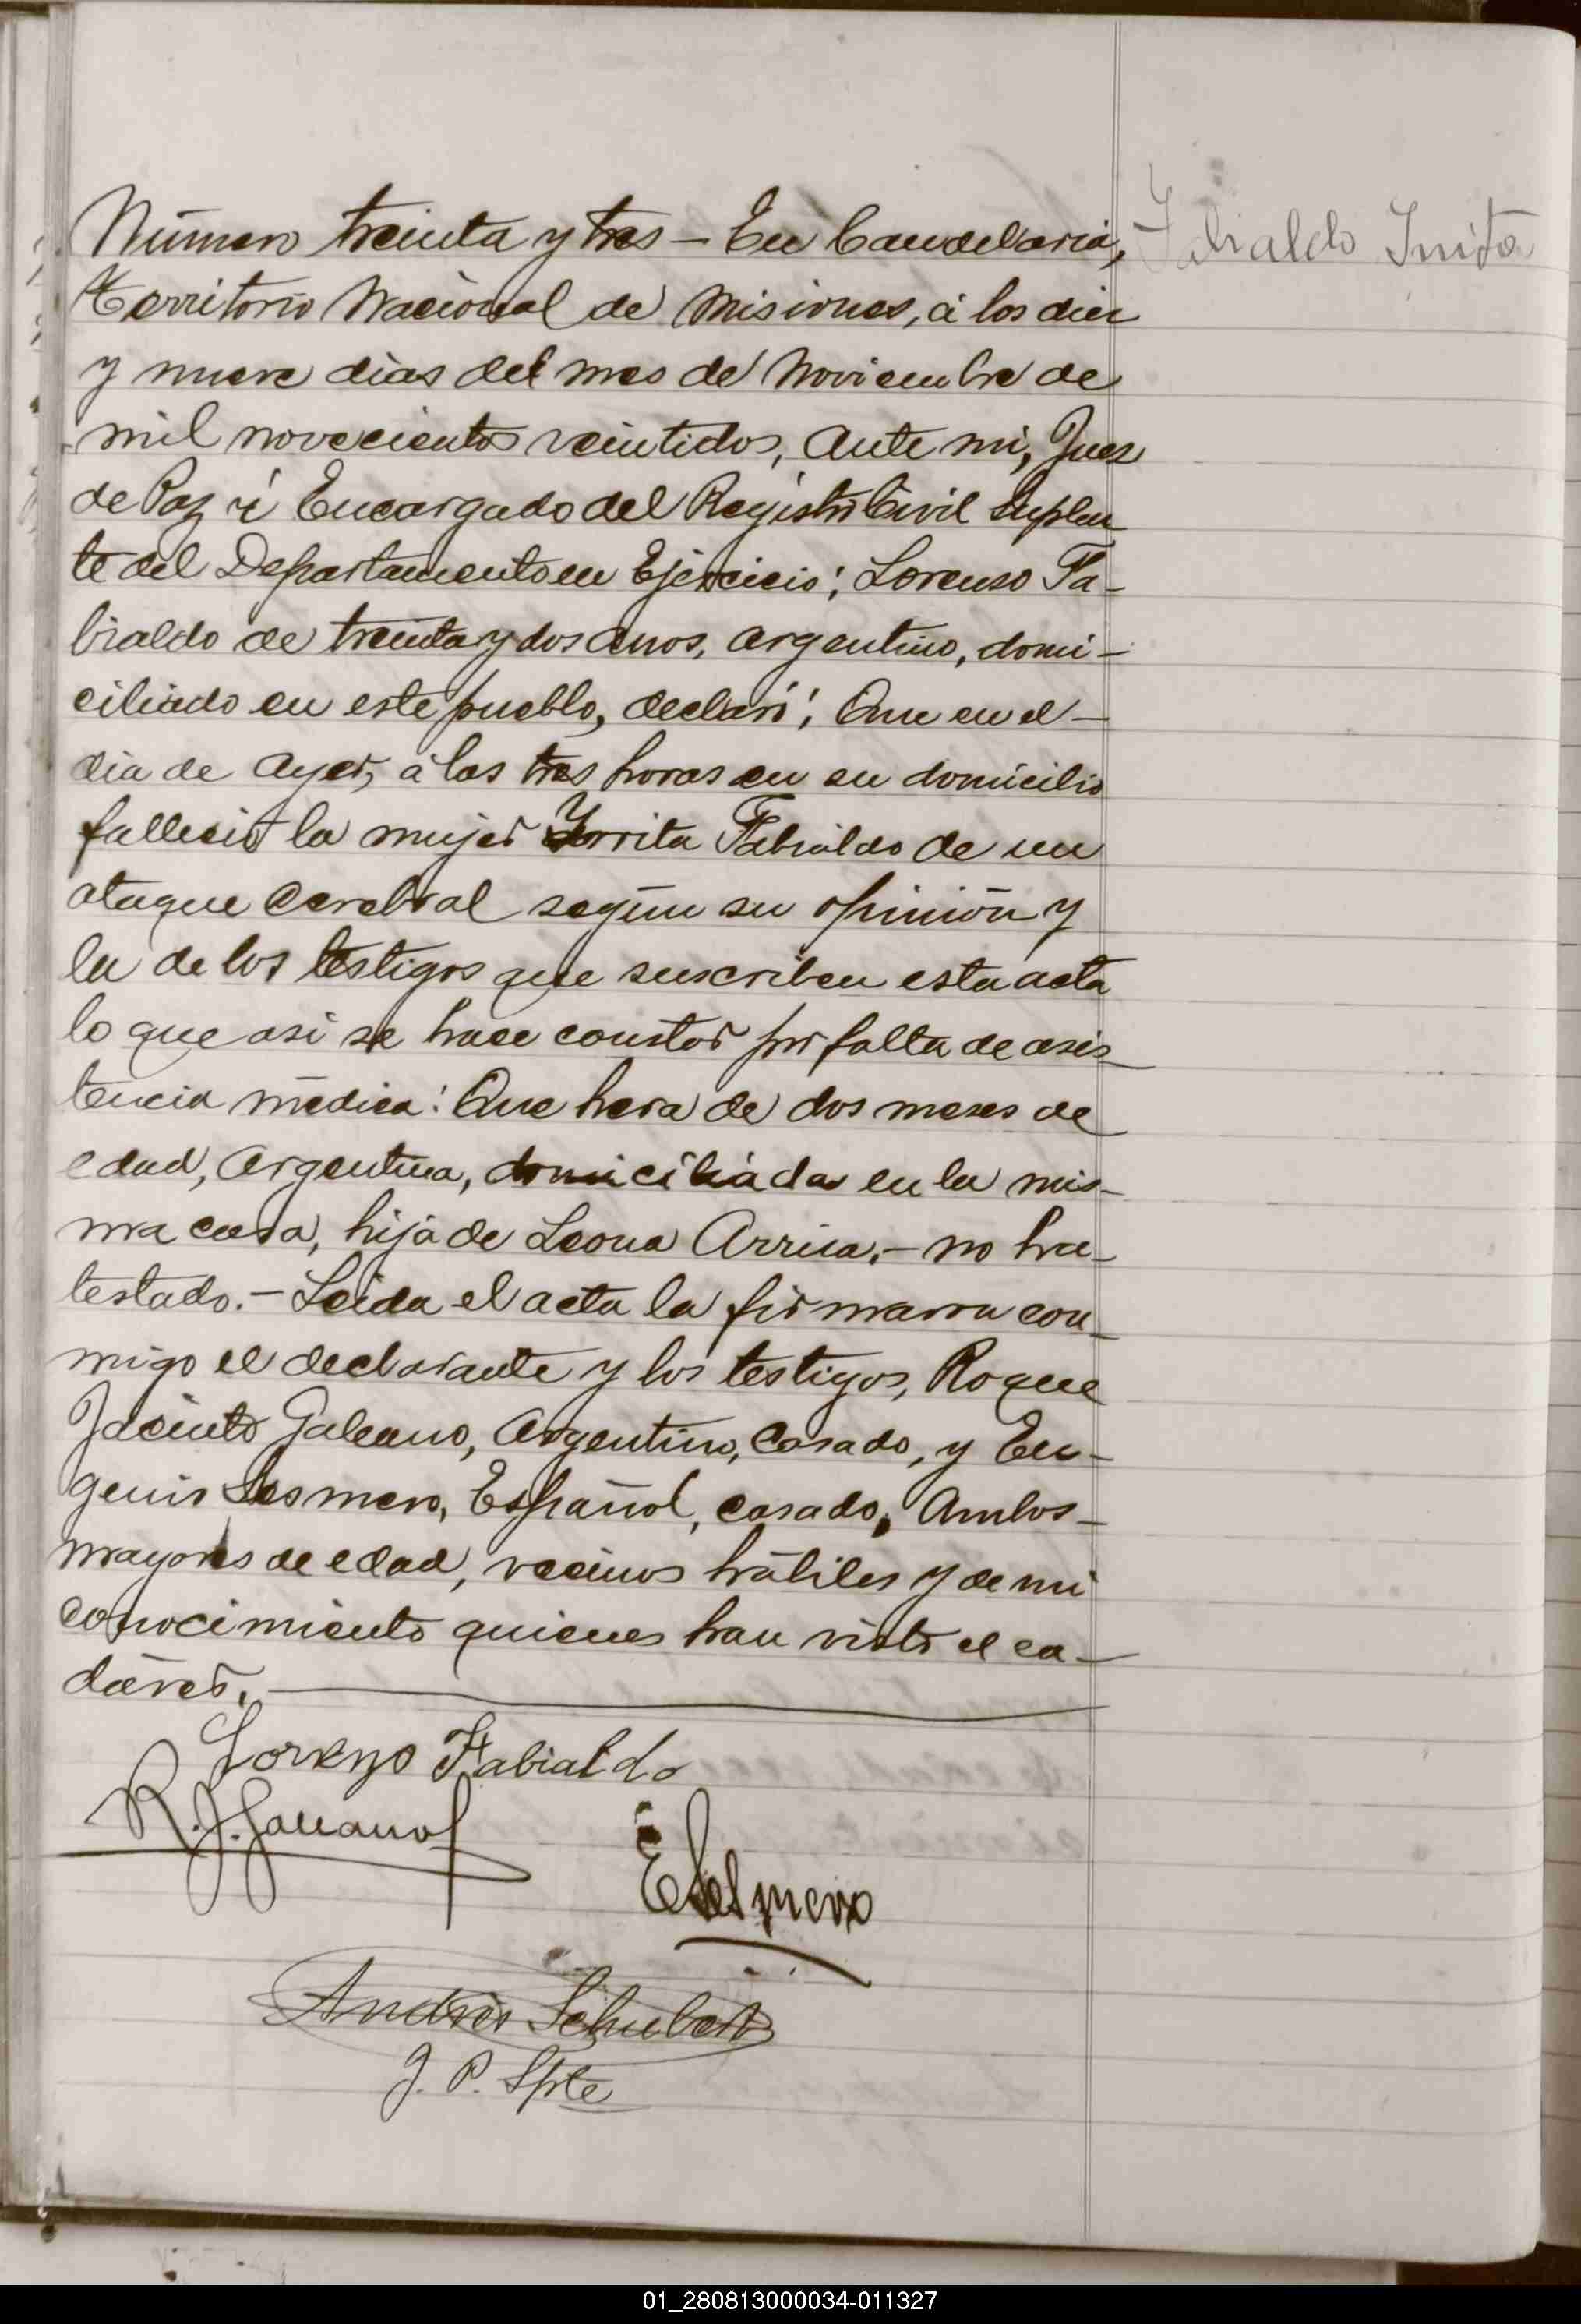 Número treinta y tres – En Candelaria,
Territorio Nacional de Misiones, á los diez
y nueve dias del mes de Noviembre de
mil novecientos veintidos, Ante mi, Juez
de Paz i Encargado del Registro Civil Suplen
te del Departamento en Ejercicio; Lorenso Fa-
bialdo de treinta y dos años, argentino, domi-
ciliado en este pueblo, declaró; Que en el
dia de Ayer, á las tres horas en su domicilio
falleció la mujer Fabialdo de un
ataque cerebral según su opinión y
la de los testigos que suscriben esta acta
lo que asi se hace constar por falta de asis
tencia médica: Que hera de dos meses de
edad, Argentina, domiciliada en la mis-
ma casa, hija de Leona .– no ha
testado.– Leida el acta la firmaron con
migo el declarante y los testigos, Roque
Jacinto Galeano, Argentino, Casado, y Eu-
genio Lesmero, Español, casado, Ambos
mayores de edad, vecinos hábiles y de mi
conocimiento quienes han visto el ca-
dáver.
Lorenzo Fabialdo
R. J. Galeano
E Lesmero
Andrés Schubert
J. P. Splte
Fabialdo